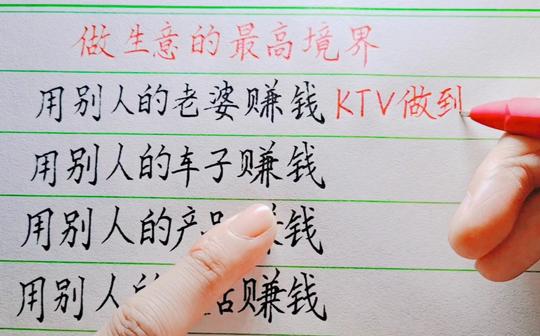 做生意的最高境界
用别人的老婆赚钱 KTV做到
用别人的车子赚钱
用别人的产品赚钱
用别人的 赚钱